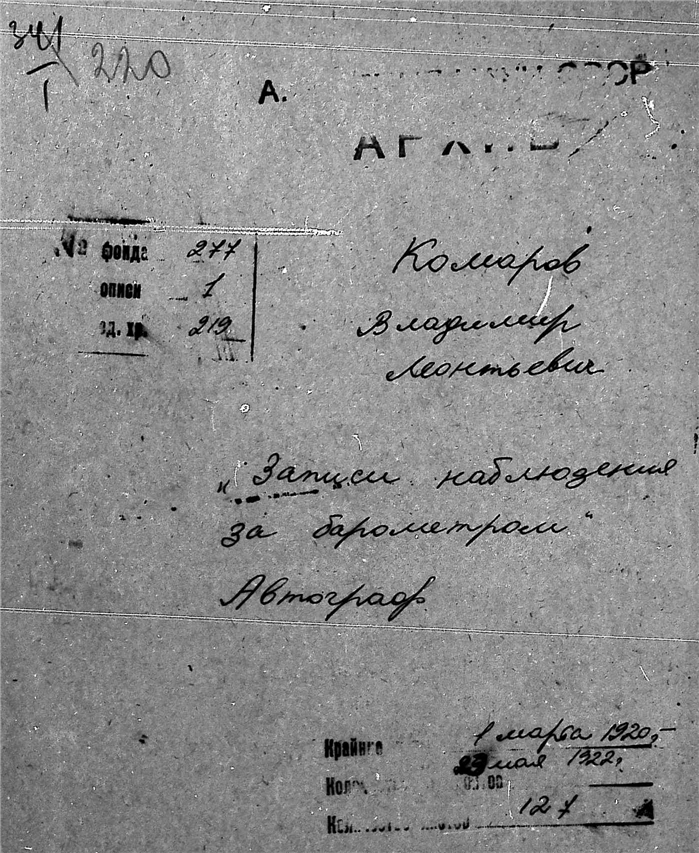 341
1
220
А. СССР
АРХИВ
№ фонда 277
описи 1
ед. хр. 219
Комаров
Владимир
Леонтьевич
"Записи наблюдения
за барометром"
Автограф
Крайние 1 марта 1920,-
23 мая 1922,
127